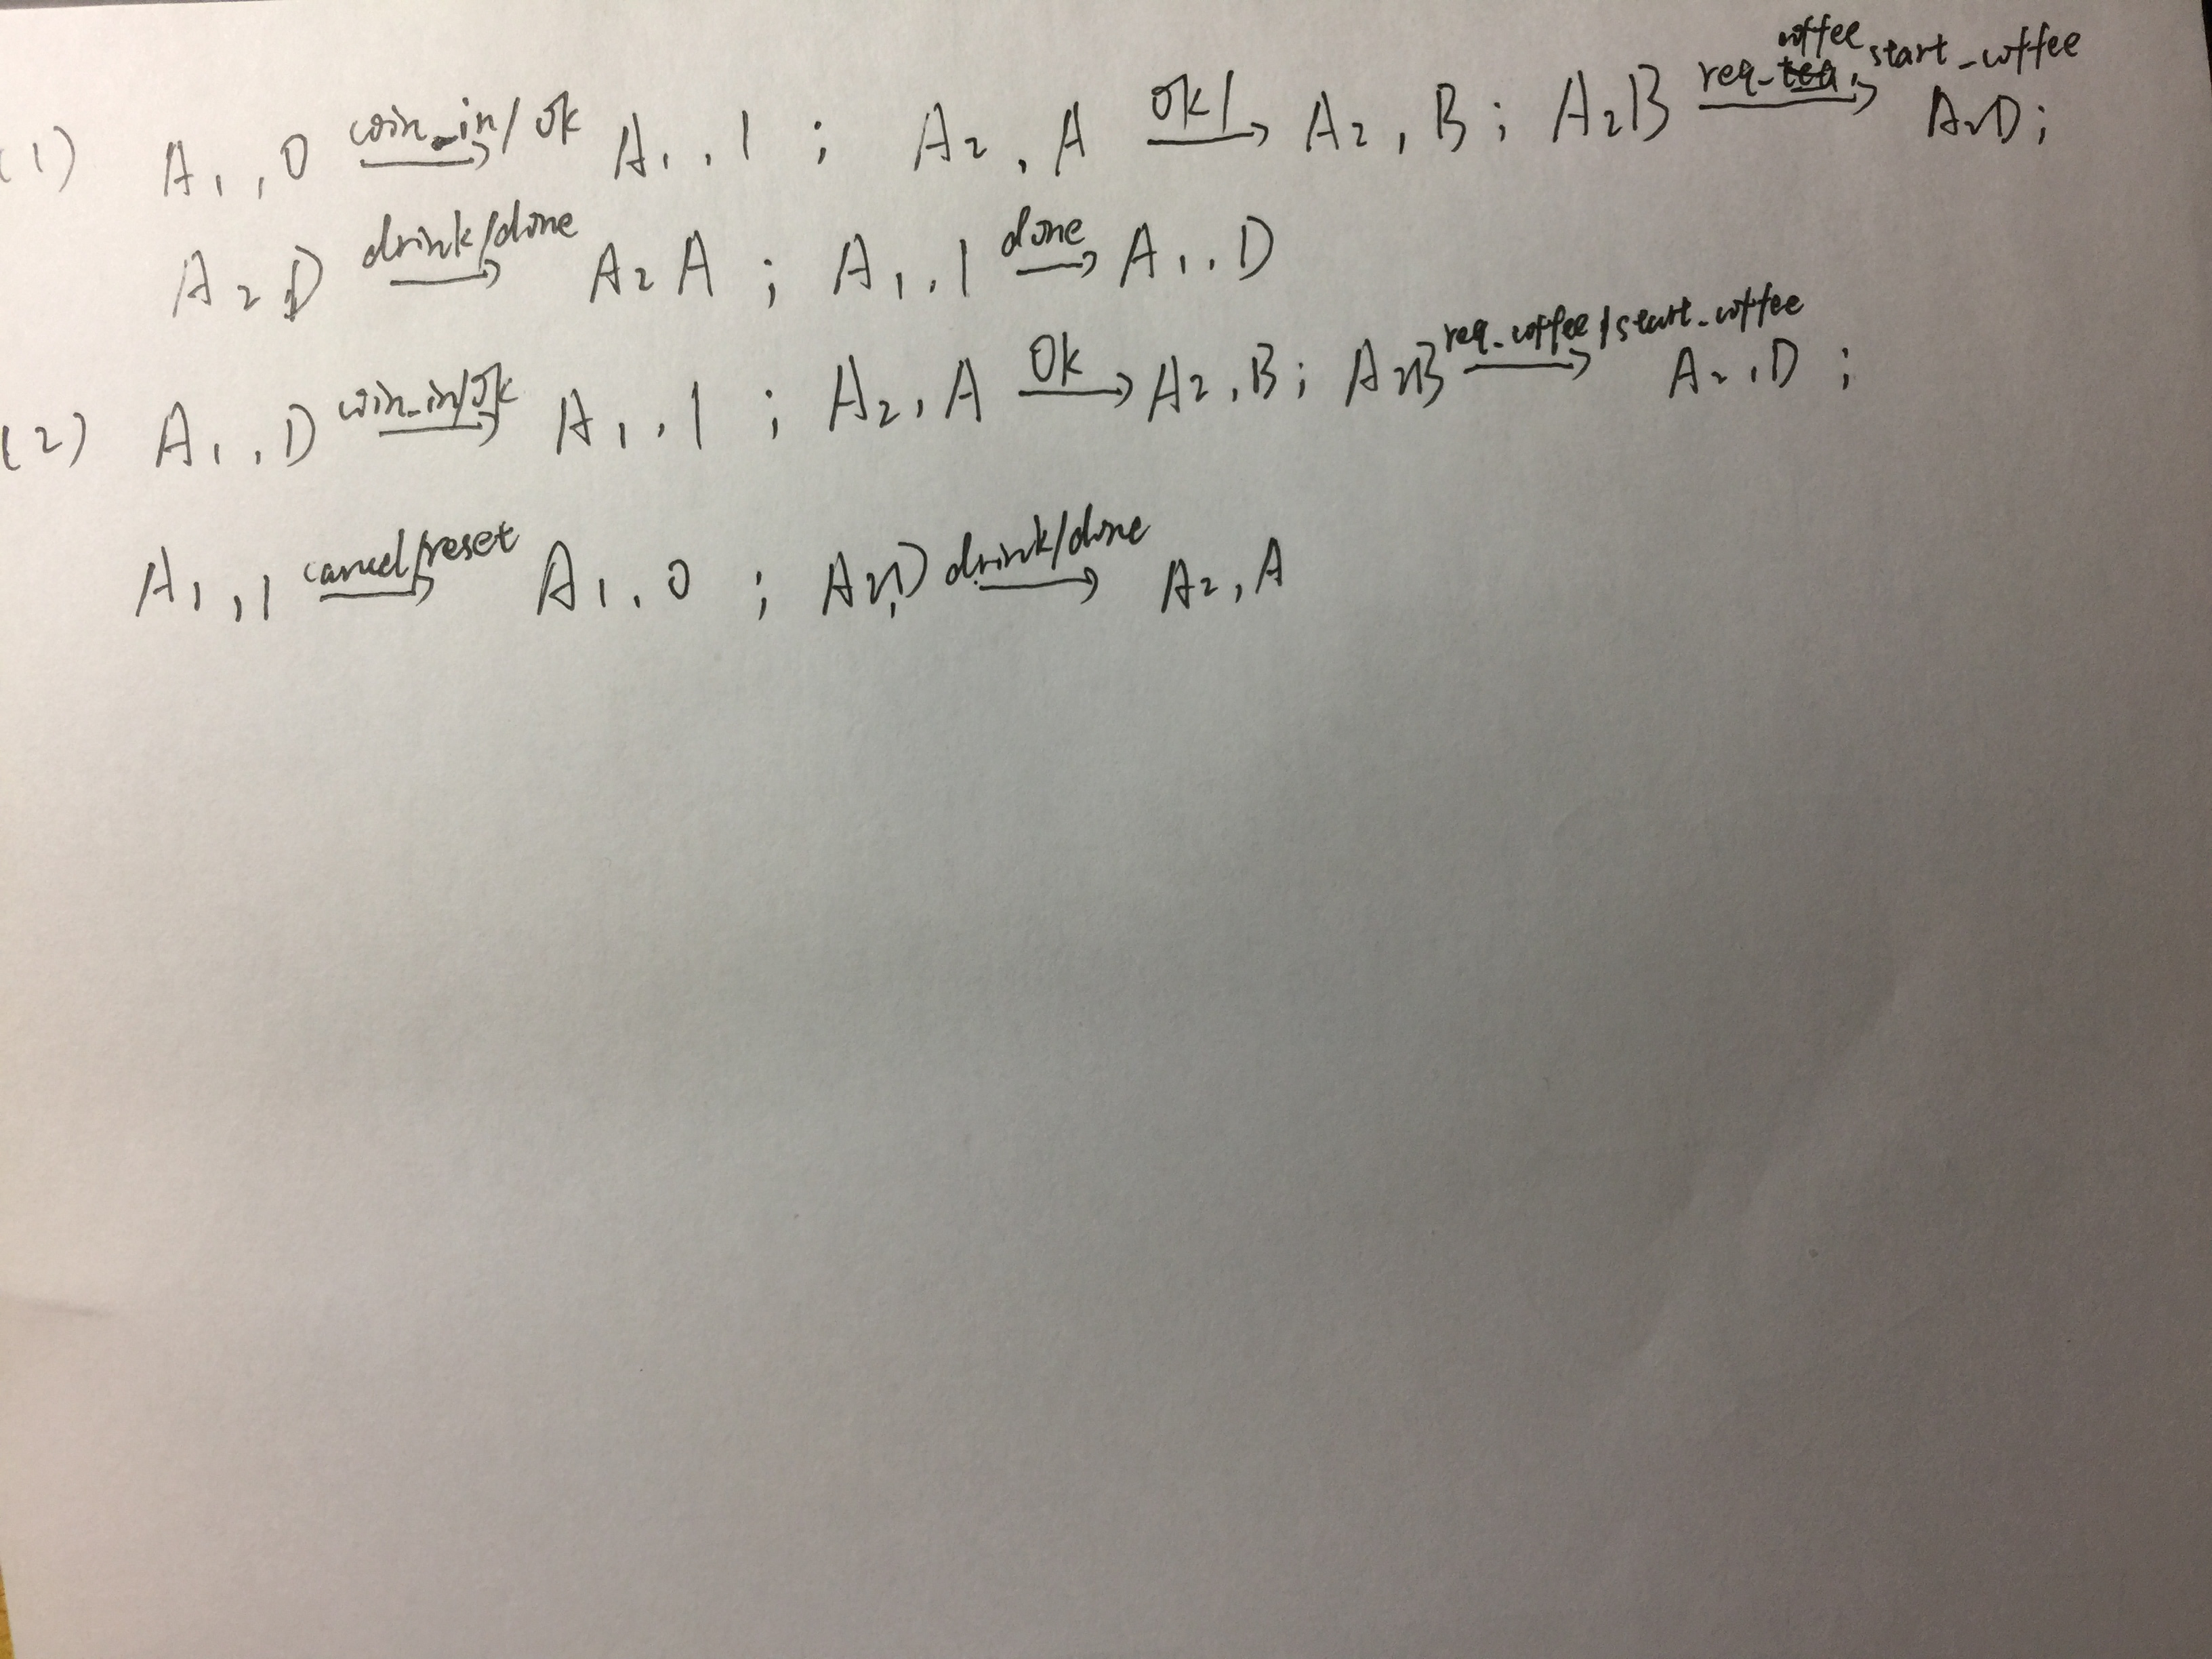 (1) A₁, 0 coin_in/ok → A₁, 1 ; A₂, A ok/ → A₂, B ; A₂B req_coffee, start_coffee → A₂D ;
A₂D drink/done → A₂A ; A₁, 1 done → A₁, D
(2) A₁, D coin_in/ok → A₁, 1 ; A₂, A ok → A₂, B ; A₂B req_coffee/start_coffee → A₂, D ;
A₁, 1 cancel/reset → A₁, 0 ; A₂, D drink/done → A₂, A